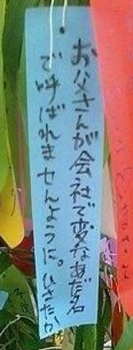 お父さんが会社で変なあだ名
で呼ばれませんように。ひさたか